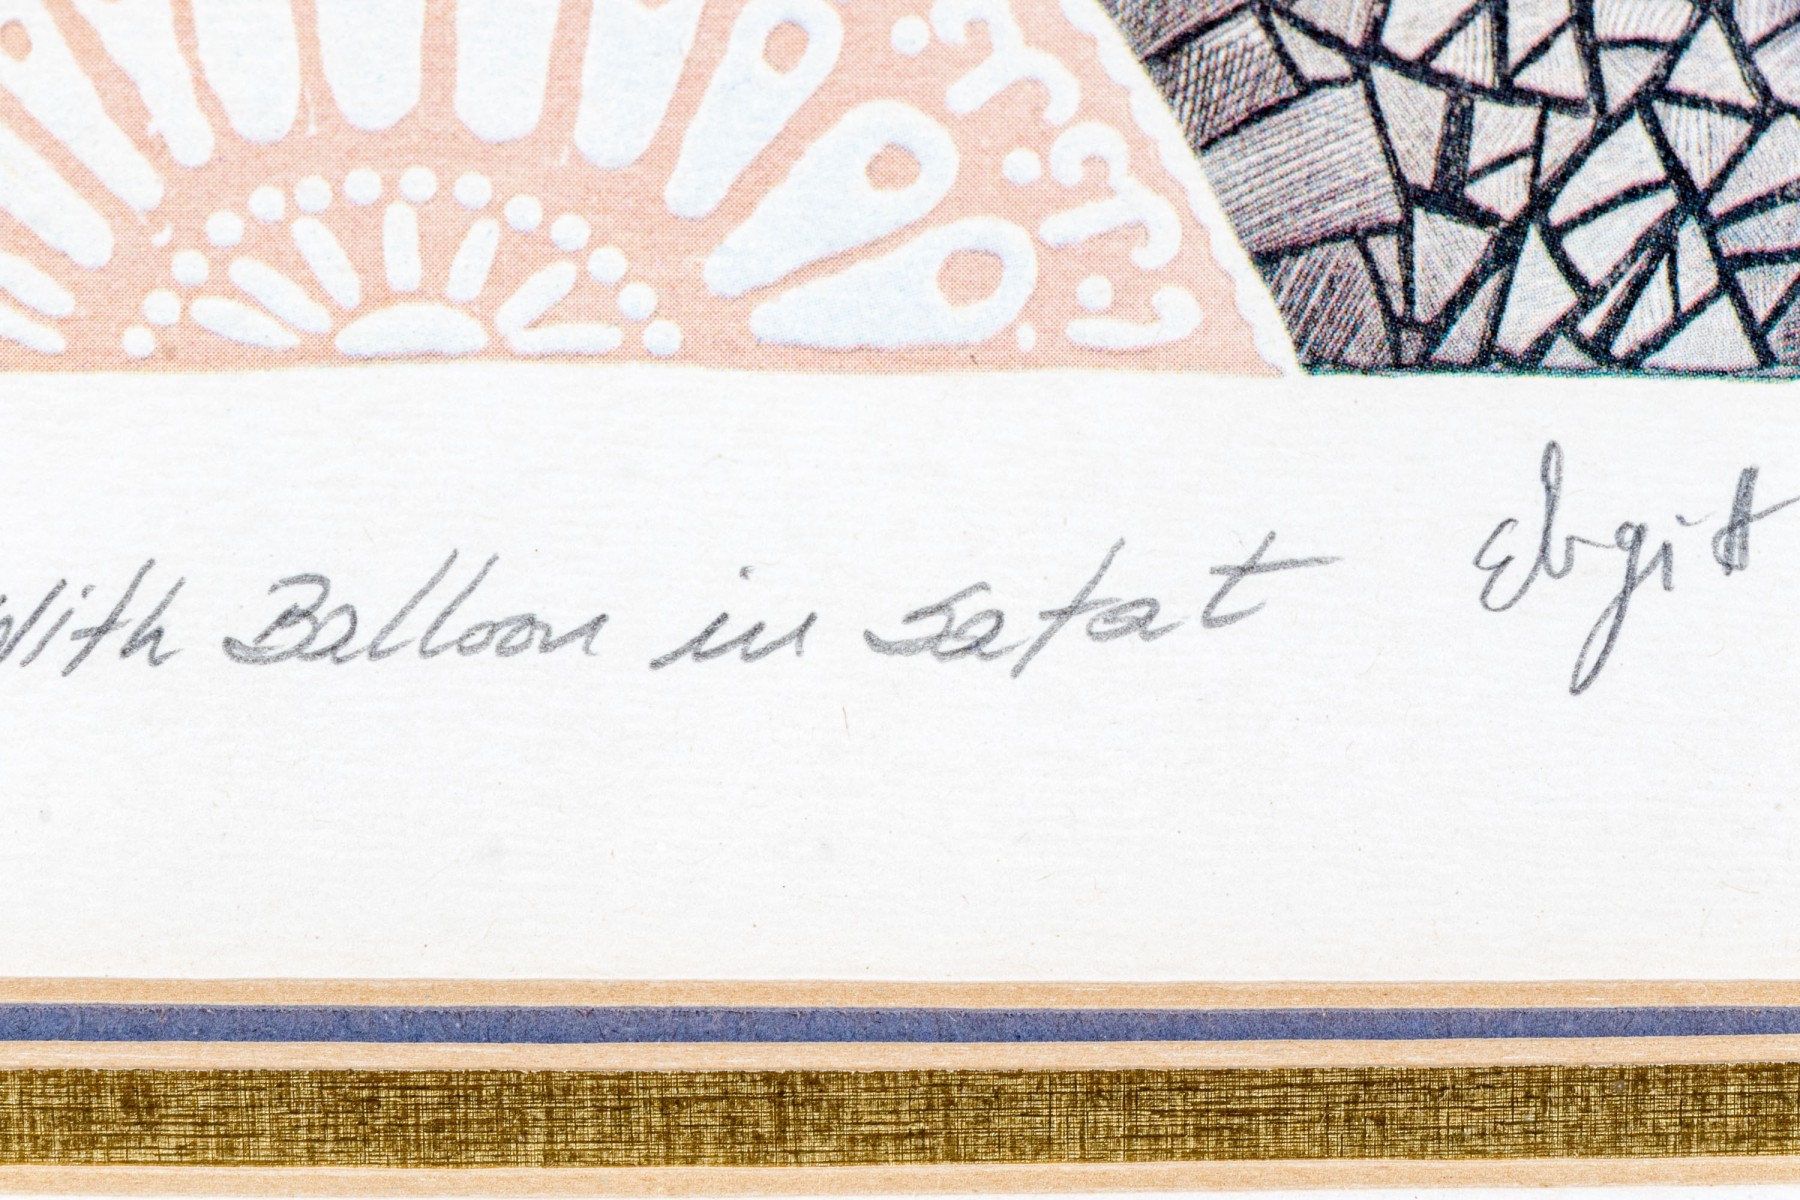 With Balloon in Safat Ebgitt